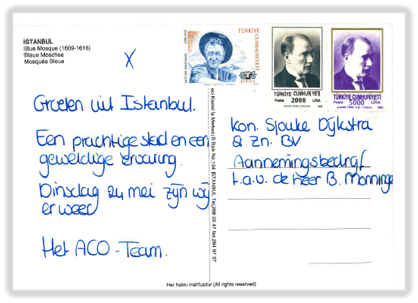 ISTANBUL
Blue Mosque (1609-1616)
Blaue Moschee
Mosquée Bleue
X
TÜRKİYE CUMHURİYETİ
TÜRKİYE CUMHURİYETİ
Posta 2000 LİRA
TÜRKİYE CUMHURİYETİ
Posta 5000 LİRA
Groeten uit Istanbul.
Een prachtige stad en een
geweldige ervaring.
Dinsdag 24 mei zijn wij
er weer
Het ACO-Team.
Kon. Sjouke Dijkstra
& Zn. BV
Aannemingsbedrijf
t.a.v. de Heer B. Monninga
Her hakkı mahfuzdur (All rights reserved)